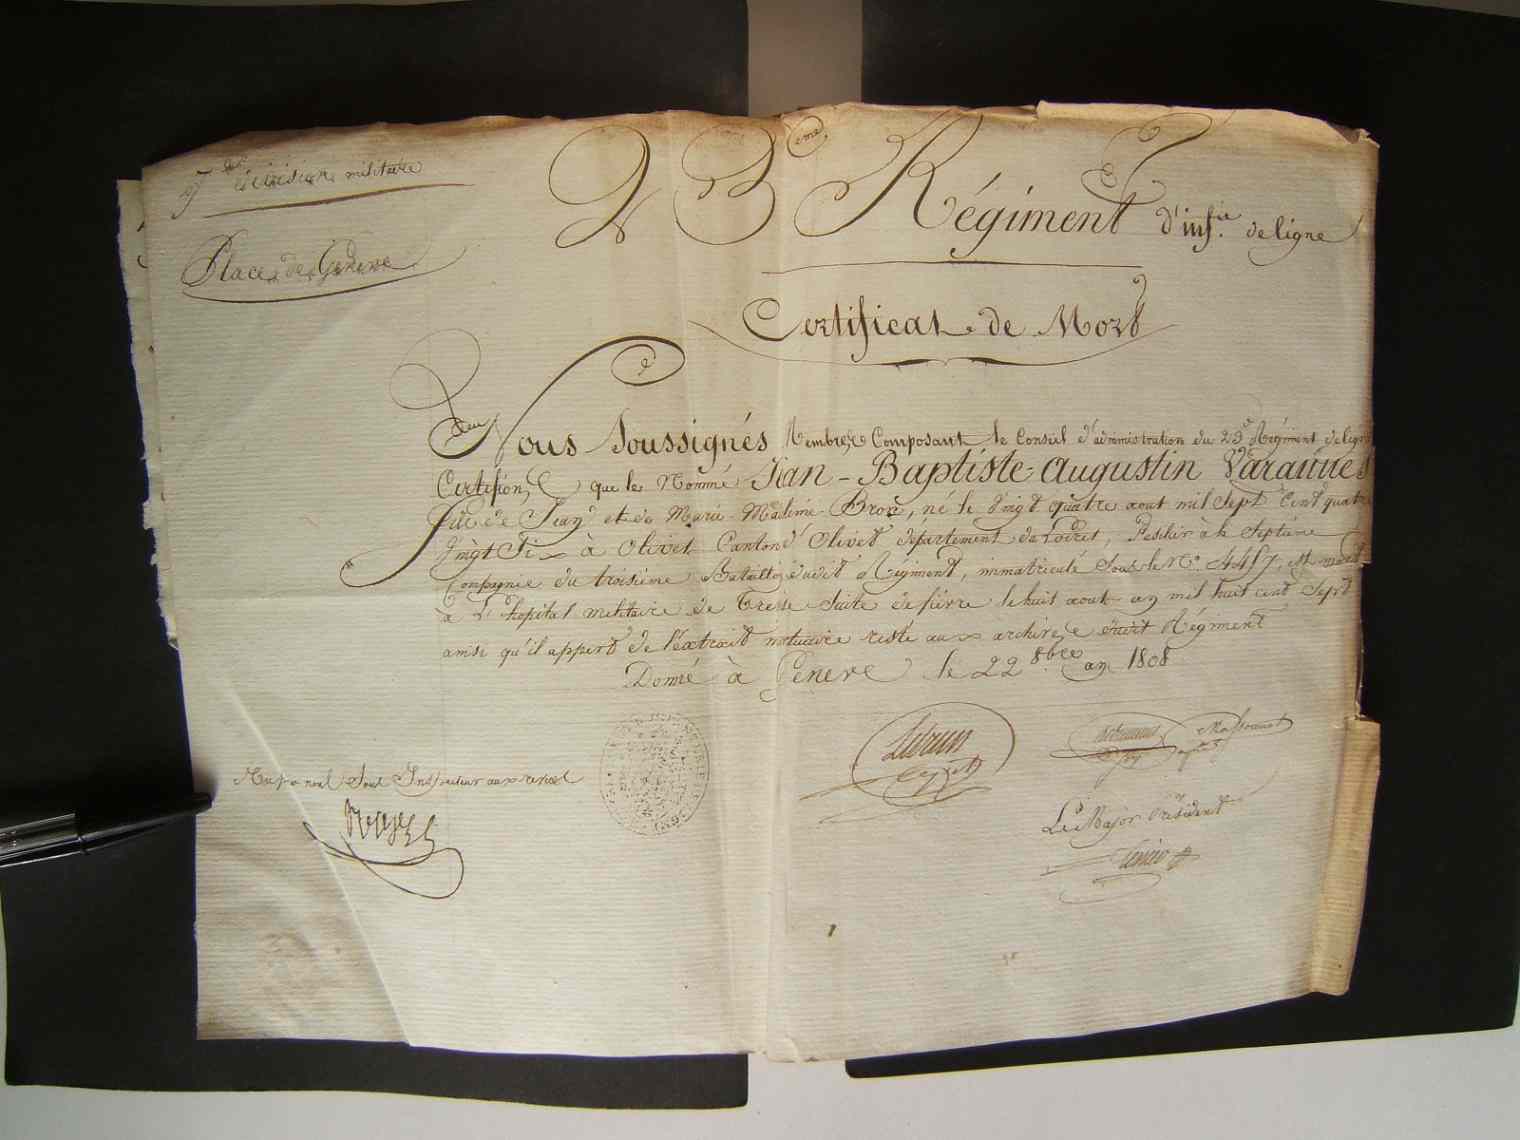 7 de division militaire
Place de Geneve
23 eme Régiment d'inf.ie de ligne
Certificat de Mort
Nous Soussignés Membres Composant le Conseil d'administration du 23e Régiment de ligne
Certifions que le Nommé Jean-Baptiste-Augustin Varannes
fils de Jean et de Marie Madeline Bron, né le Vingt quatre aout mil sept Cent quatre
Vingt Six à Olivet Canton d'Olivet département de Loiret, fusilier à la Septieme
Compagnie du troisieme Bataillon dudit Régiment, immatriculé Sous le No. 4457, est mort
à l'hopital militaire de Suite de fièvre le huit aout an mil huit cent Sept
ainsi qu'il appert de l'extrait mortuaire resté aux archives dudit Régiment
Donné à Geneve le 22 8bre an 1808
Lebrun
Le Major Président
Sous Inspecteur aux revues